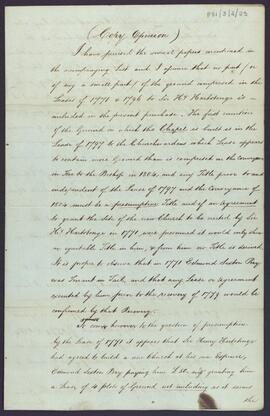 P51/3/2/23
(Copy Opinion)
I have perused the several papers mentioned in
the accompanying List and I assume that no part / or
if any a small part / of the ground comprised in the
Leases of 1771 & 1796 to Sir Hy Hartstonge is
included in the present purchase. The first mention
of the Ground on which the Chapel is built is in the
Lease of 1797 to the Churchwardens which Lease appears
to contain more Ground than is comprised in the Conveyance
in Fee to the Bishop in 1804, and any Title prior to and
independent of the Lease of 1797 and the Conveyance of
1804 must be a presumptive Title and if an Agreement
to grant the Site of the new Church to be erected by Sir
Hy Hartstonge in 1771, were presumed it would only shew
an equitable Title in him, & from him no Title is derived.
It is proper to observe that in 1771 Edmund Sexton Pery
was Tenant in Tail, and that any Lease or Agreement
executed by him prior to the recovery of 1773 would be
confirmed by that Recovery.
As however to the question of presumption
By the Lease of 1771 it appears that Sir Henry Hartstonge
had agreed to build a new Church at his own Expence,
Edmund Sexton Pery paying him £ and granting him
a Lease of 4 plots of Ground not including as it seems
the